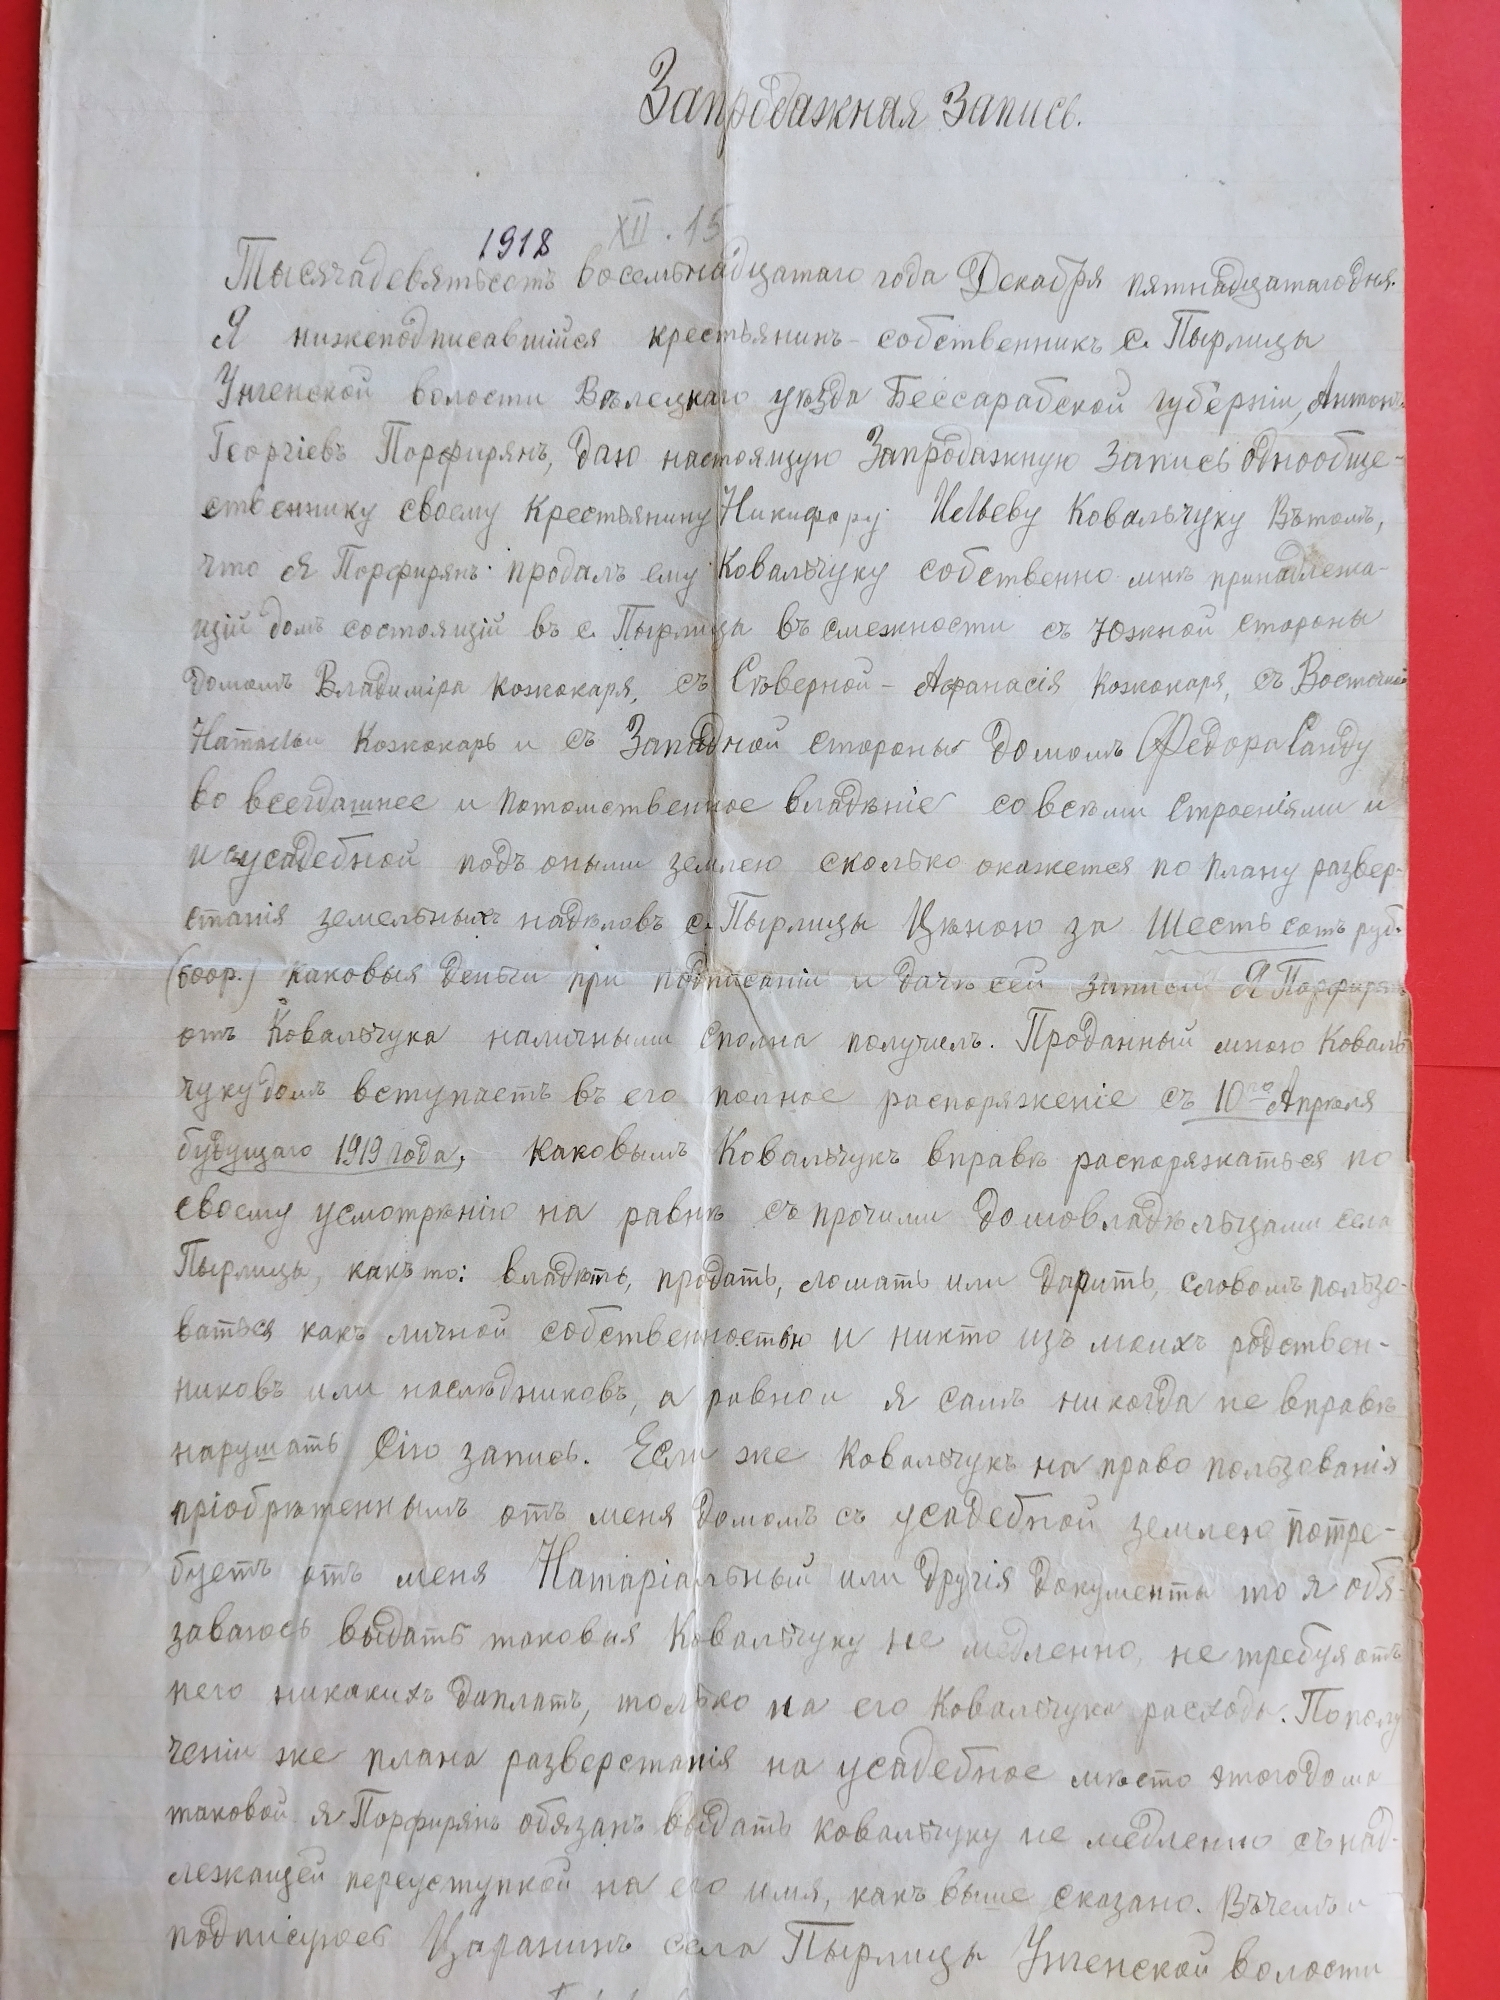 Запродажная Запись.
1918 XII. 15
Тысячадевятьсотъ восемьнадцатаго года Декабря пятнадцатагодня.
Я нижеподписавшійся крестьянинъ-собственникъ с. Пырлицы
Унгенской волости Бѣлецкаго уѣзда Бессарабской губерніи, Антонъ
Георгіевъ Порфирянъ, даю настоящую Запродажную Запись однообще-
ственнику своему Крестьянину Никифору Ильеву Ковальчуку Вътомъ,
что я Порфирянъ продалъ ему Ковальчуку собственно мнѣ принадлежа-
щій домъ состоящій въ с. Пырлицы въ смежности съ Южной стороны
домомъ Владиміра Кожокаря, съ Сѣверной - Афанасія Кожокаря, съ Восточной
Натальи Кожокарь и съ Западной стороны домомъ Федора Санду
во всегдашнее и потомственное владѣніе совсѣми Строеніями и
и съусадебной подъ оными землею сколько окажется по плану развер-
станія земельныхъ надѣловъ с. Пырлицы Цѣною за Шесть сотъ руб.
(600р.) каковыя деньги при подписаніи и дачѣ сей записи Я Порфирянъ
отъ Ковальчука наличными сполна получилъ. Проданный мною Коваль
чуку домъ вступаетъ въ его полное распоряженіе съ 10го Апрѣля
будущаго 1919 года, каковымъ Ковальчукъ вправѣ распоряжаться по
своему усмотрѣнію на равнѣ съ прочими домовладѣльцами села
Пырлицы, какъ то: владѣть, продать, ломать или дарить, словомъ пользо-
ваться какъ личной собственностью и никто изъ моихъ родствен-
никовъ или наслѣдниковъ, а равно и я самъ никогда не вправѣ
нарушать Сію запись. Если же Ковальчукъ на право пользованія
пріобрѣтеннымъ отъ меня домомъ съ усадебной землею потре-
буетъ отъ меня Натаріальный или другія документы то я обя-
зываюсь выдать таковыя Ковальчуку не медленно, не требуя отъ
него никакихъ даплатъ, только на его Ковальчука расходы. По полу
ченіи же плана разверстанія на усадебное мѣсто этого дома
таковой я Порфирянъ обязанъ выдать Ковальчуку не медленно съ над-
лежащей переуступкой на его имя, какъ выше сказано. Въчемъ и
подписуюсь Царанинъ села Пырлицы Унгенской волости